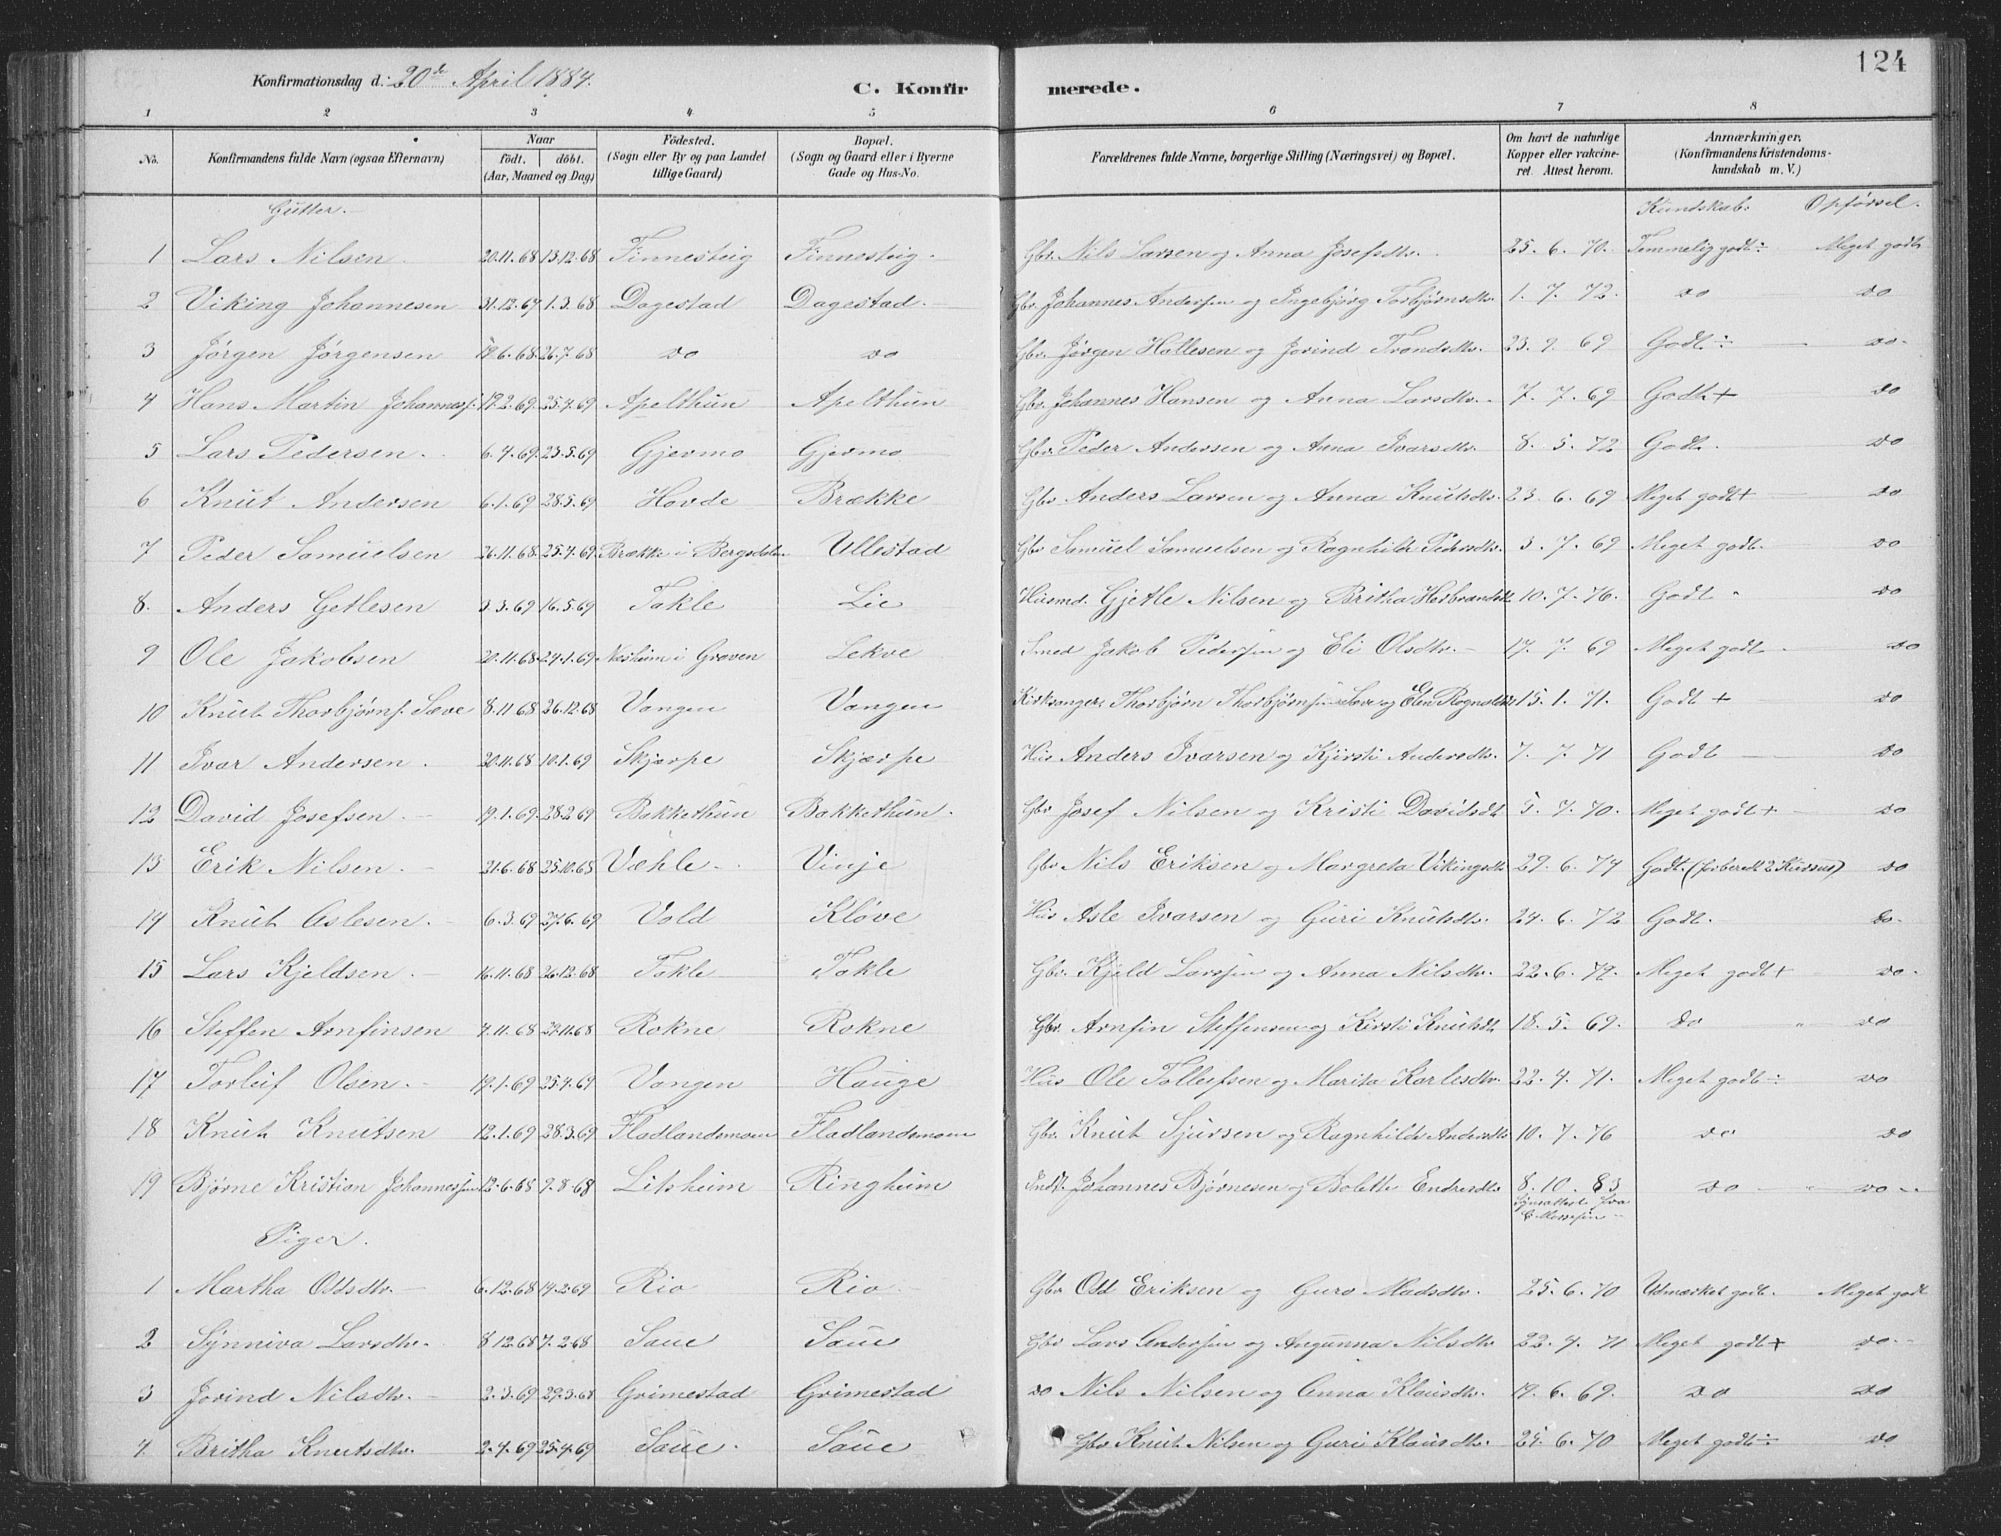 124
Konfirmationsdag d: 20de April 1884.
C. Konfirmerede.
1 2 3 4 5 6 7 8
No. Konfirmandens fulde Navn (ogsaa Efternavn) Naar født. døbt. (Aar, Maaned og Dag) Födested. (Sogn eller By og paa Landet tillige Gaard) Bopæl. (Sogn og Gaard eller i Byerne Gade og Hus-No. Forældrenes fulde Navne, borgerlige Stilling (Næringsvei) og Bopæl. Om havt de naturlige Kopper eller vakcineret. Attest herom. Anmærkninger. (Konfirmandens Kristendomskundskab m. V.)
Gutter. Kundskab: Opførsel.
1 Lars Nilsen 20.11.68 13.12.68 Finnesteig Finnesteig Gbr. Nils Larsen og Anna Josefsdtr. 25. 6. 70. Temmelig godt ÷ Meget godt
2 Viking Johannesen 31.12.67 1.3.68 Dagestad Dagestad Gbr. Johannes Andersen og Ingebjørg Torbjørnsdtr. 1. 7. 72. do do
3 Jørgen Jørgensen 19.6.68 26.7.68 do do Gbr. Jørgen Hallesen og Jorind Trondsdtr. 23. 9. 69 Godt ÷ do
4 Hans Martin Johanness. 17.2.69 25.4.69 Apelthun Apelthun Gbr. Johannes Hansen og Anna Larsdtr. 7. 7. 69 Godt + do
5 Lars Pedersen 6.4.69 23.5.69 Gjermo Gjermo Gbr. Peder Andersen og Anna Ivarsdtr. 8. 5. 72 Godt. do
6 Knut Andersen 6.1.69 28.5.69 Hovde Brække Gbr Anders Larsen og Anna Knutsdtr. 23. 6. 69 Meget godt + do
7 Peder Samuelsen 26.11.68 25.4.69 Brække i Bergsdalen Ullestad Gbr Samuel Samuelsen og Ragnhilde Pedersdtr. 3. 7. 69 Meget godt. do
8. Anders Getlesen 3.3.69 16.5.69 Takle Lie Husmd. Gjetle Nilsen og Britha Herbrandsdtr 10. 7. 76. Godt do
9 Ole Jakobsen 20.11.68 24.1.69 Nesheim i Graven Lekve Smed Jakob Pedersen og Eli Olsdtr. 17. 7. 69 Meget godt do
10 Knut Thorbjørns. Sæve 8.11.68 26.12.68 Vangen Vangen Kirksanger Thorbjørn Thorbjørnsen Sæve og Elen Rognaldsdtr 15. 1. 71. Godt + do
11 Ivar Andersen 20.11.68 10.1.69 Skjærpe Skjærpe Hus Anders Ivarsen og Kjirsti Andersdtr. 7. 7. 71 Godt do
12 David Josefsen 19.1.69 28.2.69 Bakkethun Bakkethun Gbr Josef Nilsen og Kristi Davidsdt 5. 7. 70. Meget godt + do
13 Erik Nilsen 21.6.68 25.10.68 Væhle Vinje Gbr Nils Eriksen og Margreta Vikingsdtr 29. 6. 74 Godt. (forberedt 2 Kursus) do
14 Knut Aslesen 6.3.69 27.6.69 Vold Kløve Hus Asle Ivarsen og Guri Knutsdtr. 24. 6. 72 Godt. do
15 Lars Kjeldsen 16.11.68 26.12.68 Takle Takle Gbr. Kjeld Larssen og Anna Nilsdtr. 22. 6. 72. Meget godt + do
16 Steffen Arnfinsen 4.11.68 29.11.68 Rokne Rokne Gbr. Arnfin Steffensen og Kirsti Knutsdt 18. 5. 69. do do
17 Torleif Olsen 19.1.69 25.4.69 Vangen Hauge Hus Ole Tolleifsen og Marita Karlesdtr. 22. 4. 71. Meget godt ÷ do
18 Knut Knutsen 12.1.69 28.3.69 Fladlandsmoen Fladlandsmoen Gbr. Knut Sjursen og Ragnhilde Andersdtr 10. 7. 76 do do
19 Bjørne Kristian Johannessen 12.6.68 9.8.68 Litsheim Ringheim Indst. Johannes Bjørnesen og Bolette Endresdtr 8. 10. 83 do do
Synsattest fra
Piger.
1 Martha Oddsdtr. 6.12.68 14.2.69 Rio Rio Gbr Odd Eriksen og Guro Madsdtr. 25. 6. 70 Udmærket godt. Meget godt
2 Synniva Larsdtr. 8.12.68 7.2.68 Saue Saue Gbr Lars Andersen og Angunna Nilsdtr 22. 4. 71 Meget godt + do
3 Jorind Nilsdtr. 2.3.69 29.3.68 Grimestad Grimestad do Nils Nilsen og Anna Klausdtr. 19. 6. 69. do do
4. Britha Knutsdtr. 2.4.69 25.4.69 Saue Saue Gbr Knut Nilsen og Guri Klausdtr. 25. 6. 70 Meget godt ÷ do